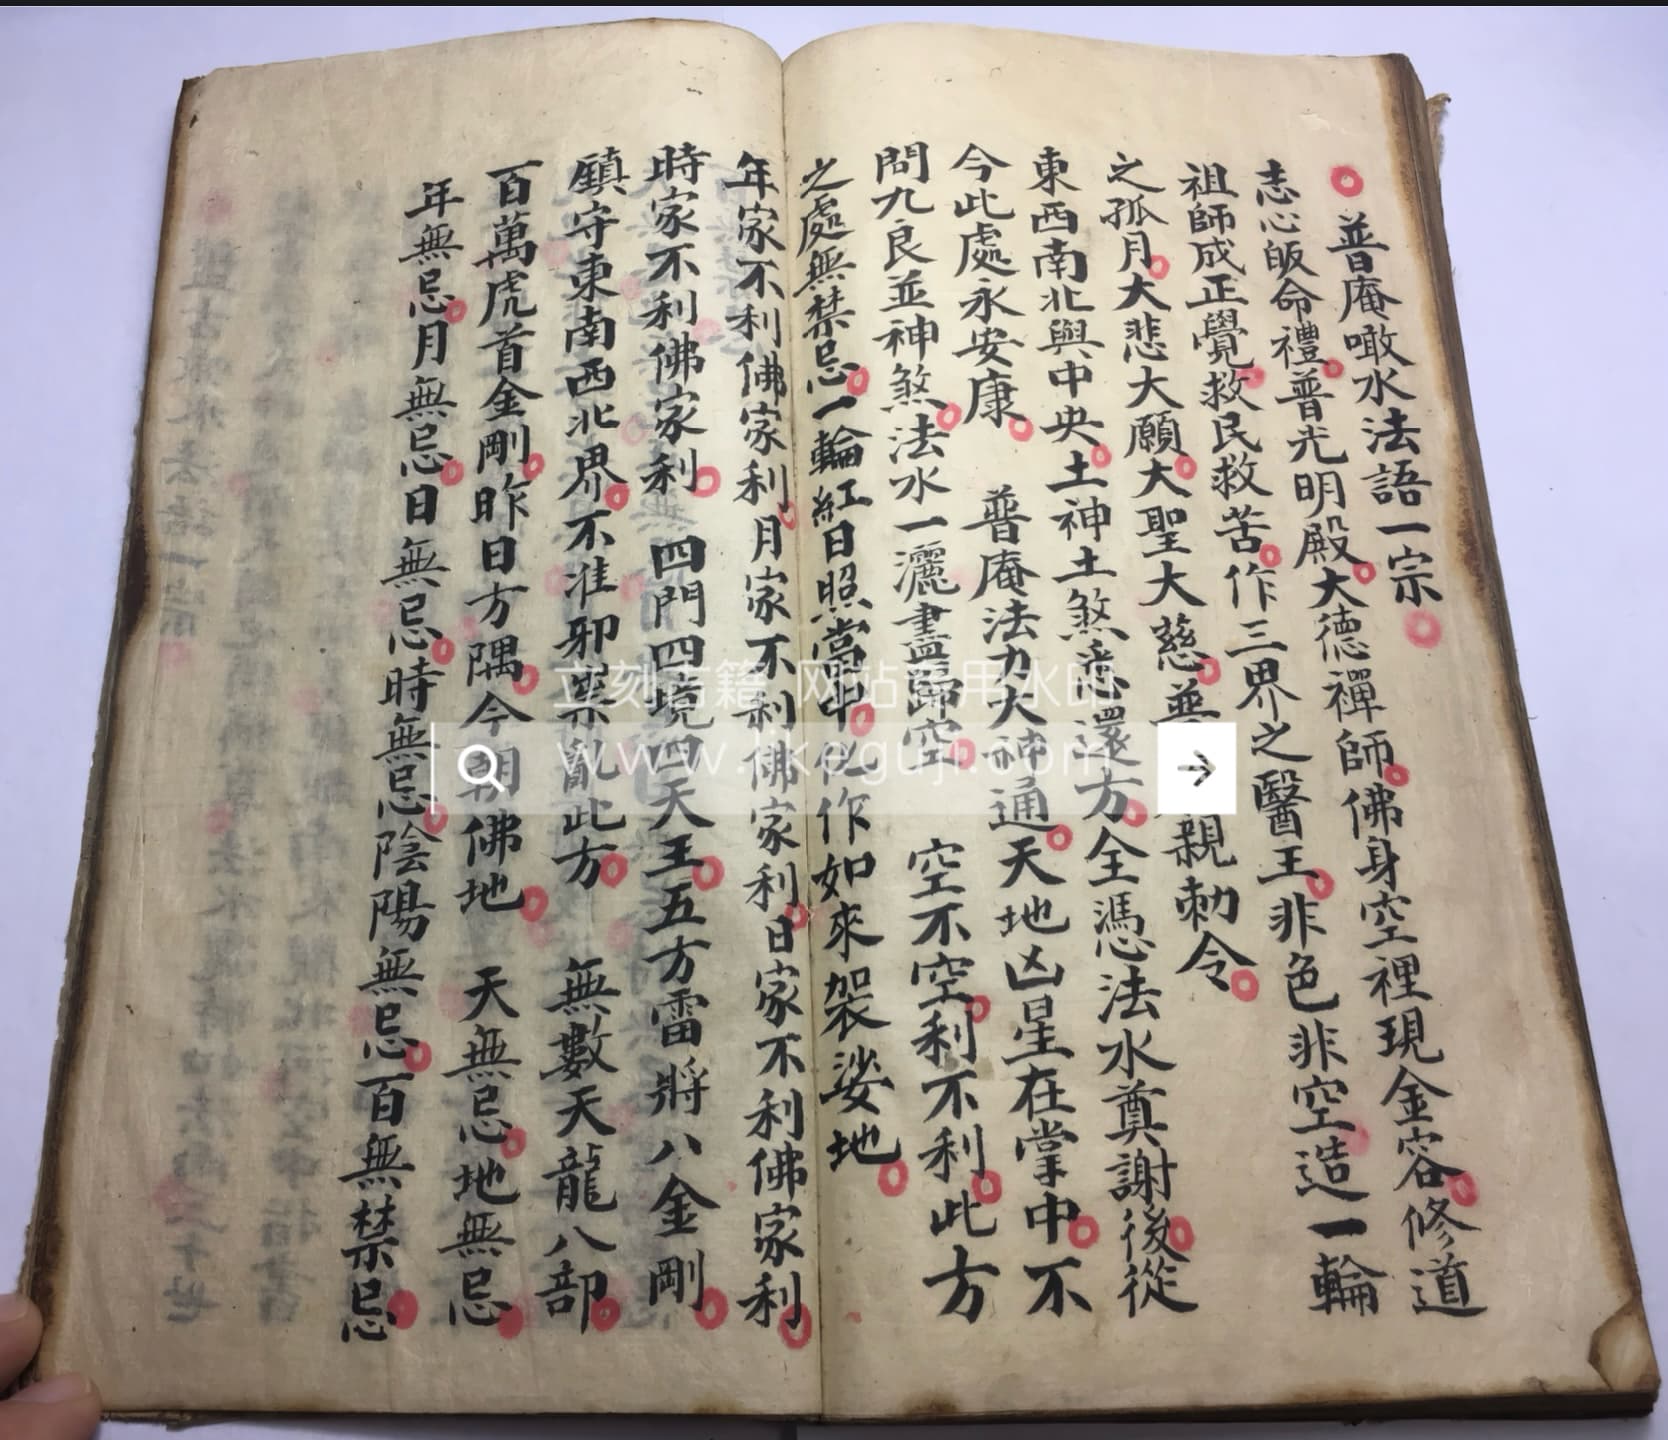 普庵噉水法語一宗
志心皈命禮普光明殿大德禪師佛身空裡現金容修道
祖師成正覺救民救苦作三界之醫王非色非空造一輪
之孤月大悲大願大聖大慈普親勅令
東西南北與中央土神土煞悉還方全憑法水奠謝後從
今此處永安康 普庵法力大神通天地凶星在掌中不
問九良並神煞法水一灑盡歸空 空不空利不利此方
之處無禁忌一輪紅日照當中化作如來袈裟地
年家不利佛家利月家不利佛家利日家不利佛家利
時家不利佛家利 四門四境四天王五方雷將八金剛
鎮守東南西北界不准邪禁亂此方 無數天龍八部
百萬虎首金剛昨日方隅今朝佛地 天無忌地無忌
年無忌月無忌日無忌時無忌陰陽無忌百無禁忌
立刻古籍 网站专用水印
www.ikeguji.com